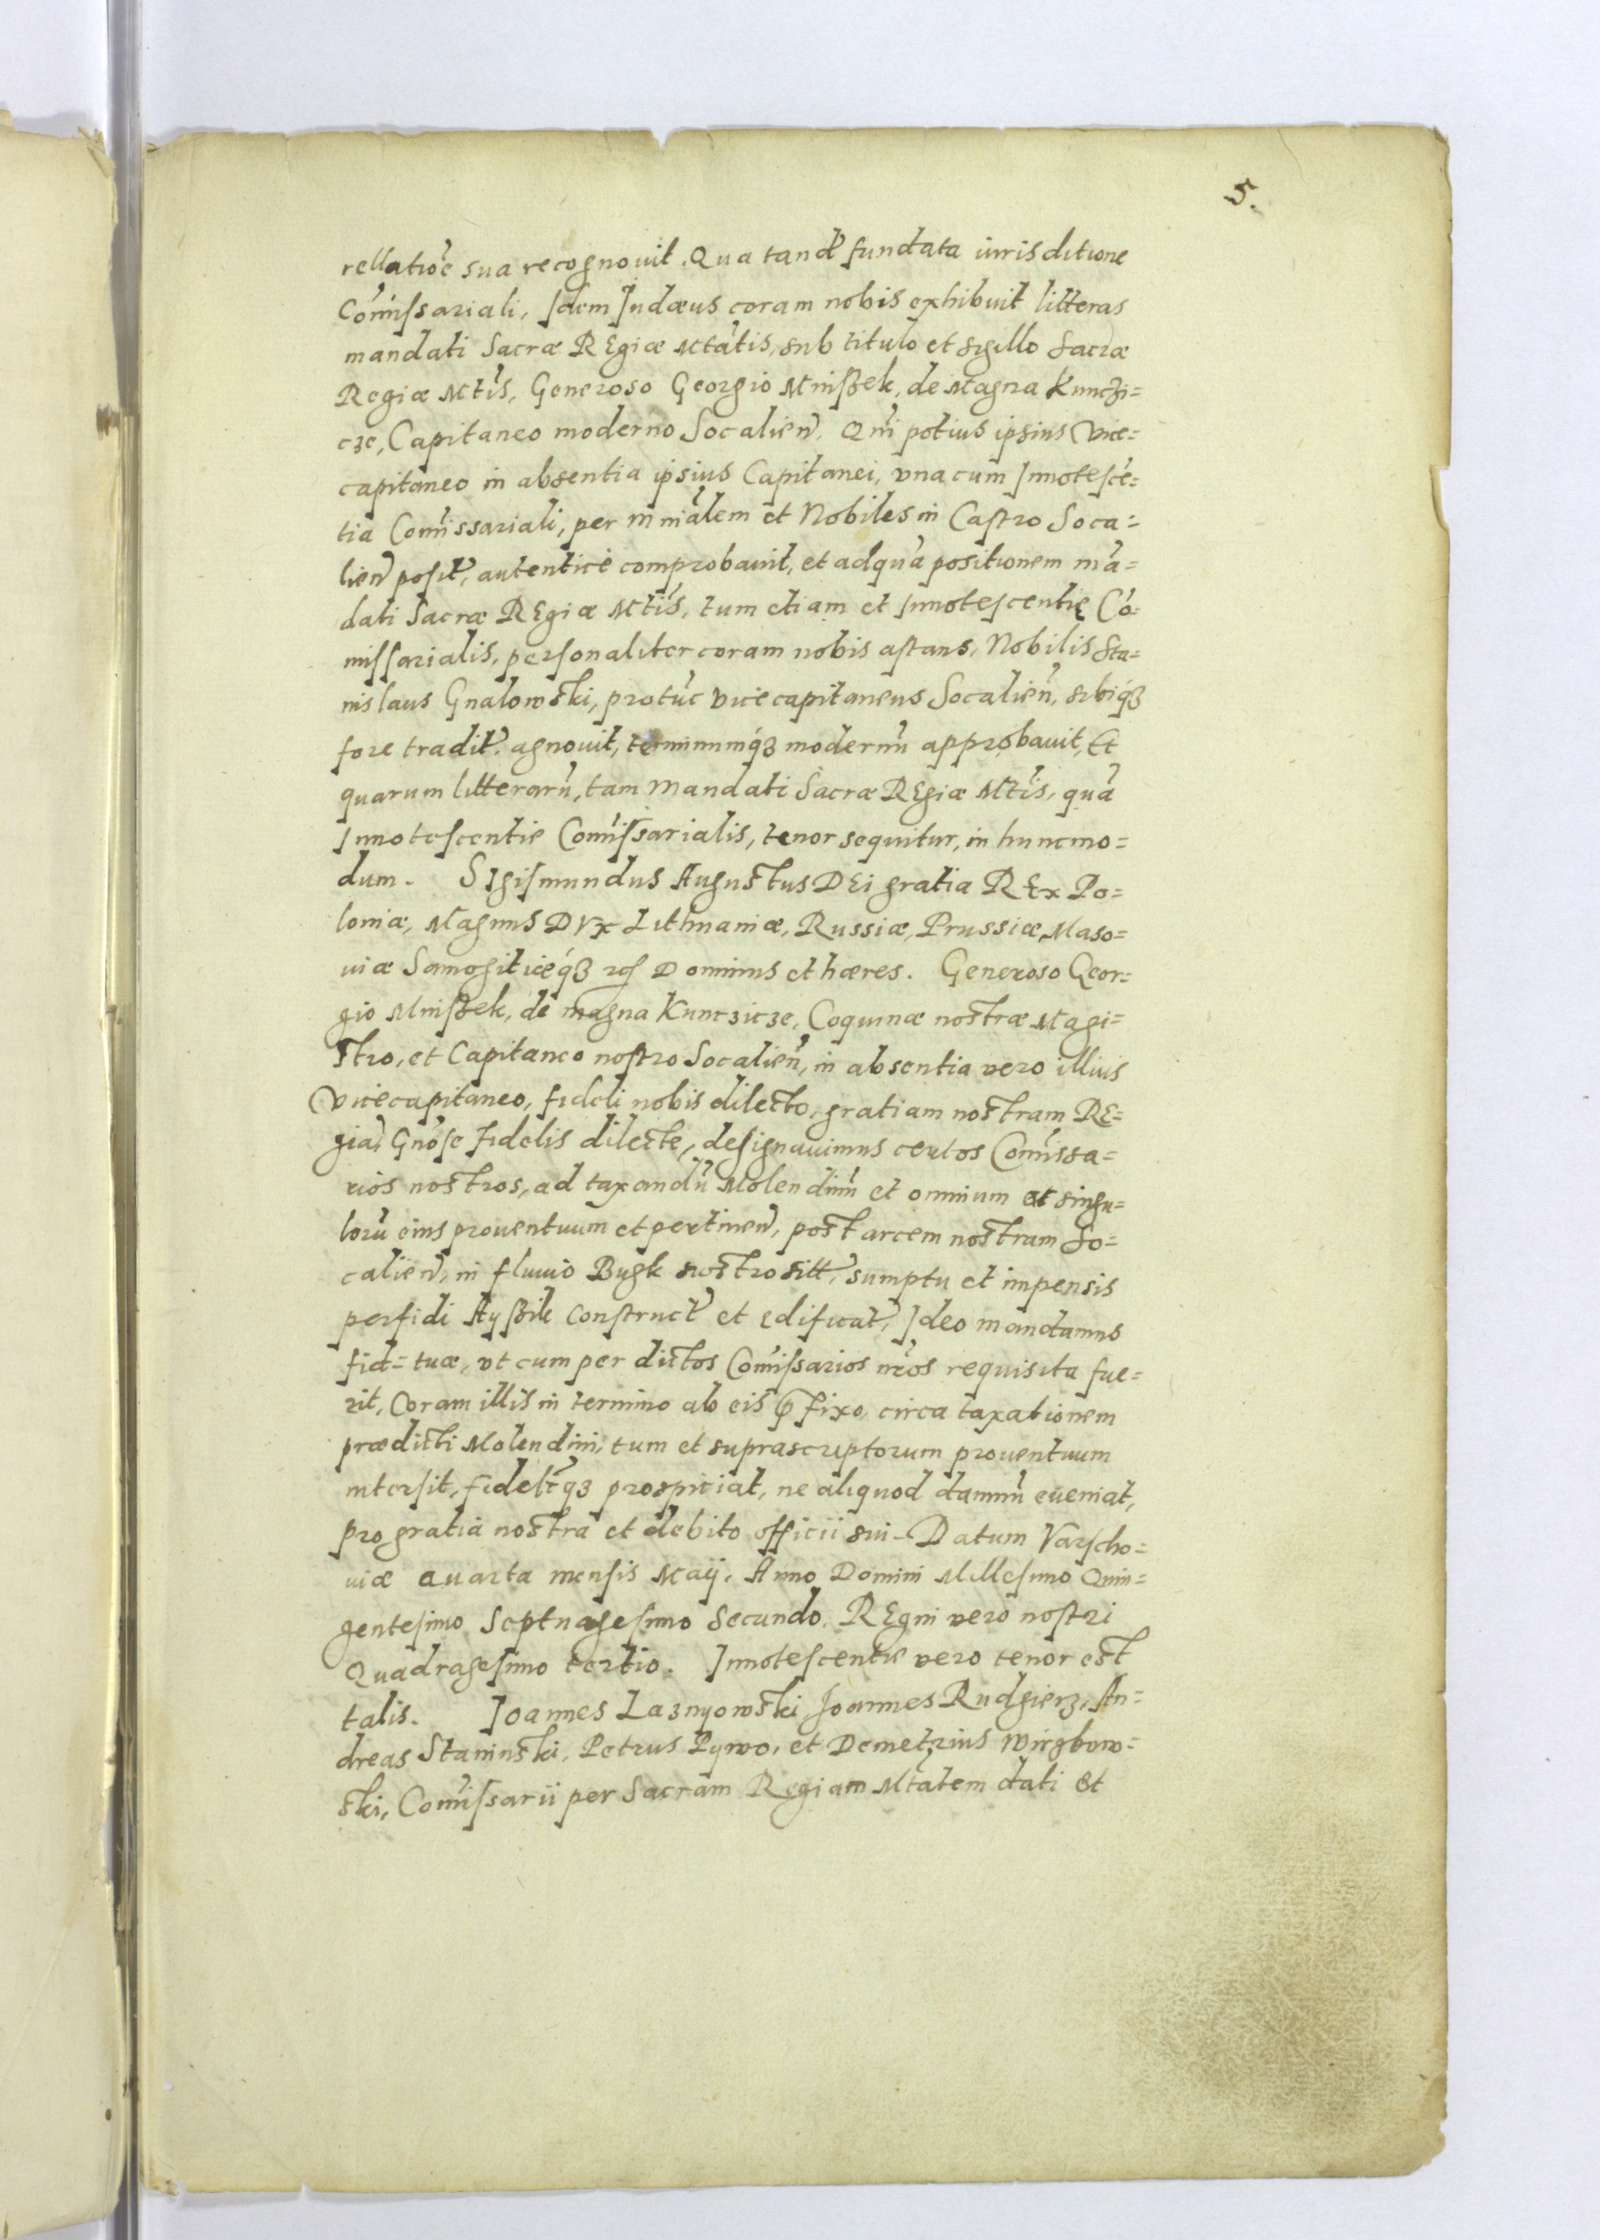 5.
rellatiōe sua recognouit. Qua tand̃ fundata iurisditione
Com̃issariali, Idem Judæus coram nobis exhibuit litteras
mandati Sacræ REgiæ Mtãtis, sub titulo et sigillo Sacræ
Regiæ Mtĩs, Generoso Georgio Mnißek, de Magna Kunczi=
cze, Capitaneo moderno Socalieñ. Qm̃ potius ipsius Vice=
capitaneo in absentia ipsius Capitanei, vna cum Innotescẽ=
tia Com̃issariali, per mniãlem et Nobiles in Castro Soca=
lieñ posit̃, autenticè comprobauit, et adquã positionem mã=
dati Sacræ REgiæ Mtĩs, tum etiam et Innotescentię Cõ=
missarialis, personaliter coram nobis astans, Nobilis Sta=
nislaus Gnalowski, protũc vicecapitaneus Socalieñ, sibiq́ꝫ
fore tradit̃. agnouit, terminumq́ꝫ modernũ approbauit, Et
quarum litterarũ, tam Mandati Sacræ REgiæ Mtĩs, quã
Innotescentie Com̃issarialis, tenor sequitur, in hunc mo=
dum. SIgismundus Augustus DEi gratia REx Po=
loniæ, Magnus DVx Lithuaniæ, Russiæ, Prussiæ, Maso=
uiæ Samogitiæq́ꝫ zc̃ Dominus et hæres. Generoso Geor=
gio Mnißek, de magna Kunczicze, Coquinæ nostræ Magi=
stro, et Capitaneo nostro Socalieñ, in absentia vero illius
Vicecapitaneo, fideli nobis dilecto, gratiam nostram RE=
giã, Gnõse fidelis dilecte, designauimus certos Com̃issa=
rios nostros, ad taxandũ Molendinũ et omnium et singu=
lorũ eius prouentuum et pertineñ, post arcem nostram So=
calieñ, in fluuio Bugk nostro sitt̃, sumptu et impensis
perfidi Ayßik construct̃ et edificat̃, Ideo mandamus
fid= tuæ, vt cum per dictos Com̃issarios nr̃os requisita fue=
rit, Coram illis in termino ab eis p̃fixo, circa taxationem
prædicti Molendini, tum et suprascriptorum prouentuum
intersit, fidelr̃q́ꝫ prospiciat, ne aliquod damnũ eueniat,
pro gratia nostra et debito officii sui- Datum Varscho=
uiæ quarta mensis Maij. Anno Domini Millesimo Quin=
gentesimo Septuagesimo Secundo. REgni vero nostri
Quadragesimo tertio. Innotescentie vero tenor est
talis. Joannes Laznyowski, Joannes Rudgierz, An=
dreas Staninski, Petrus Pywo, et Demetrius Wirzbow=
ski, Com̃issarii per Sacram Regiam Mtãtem dati et